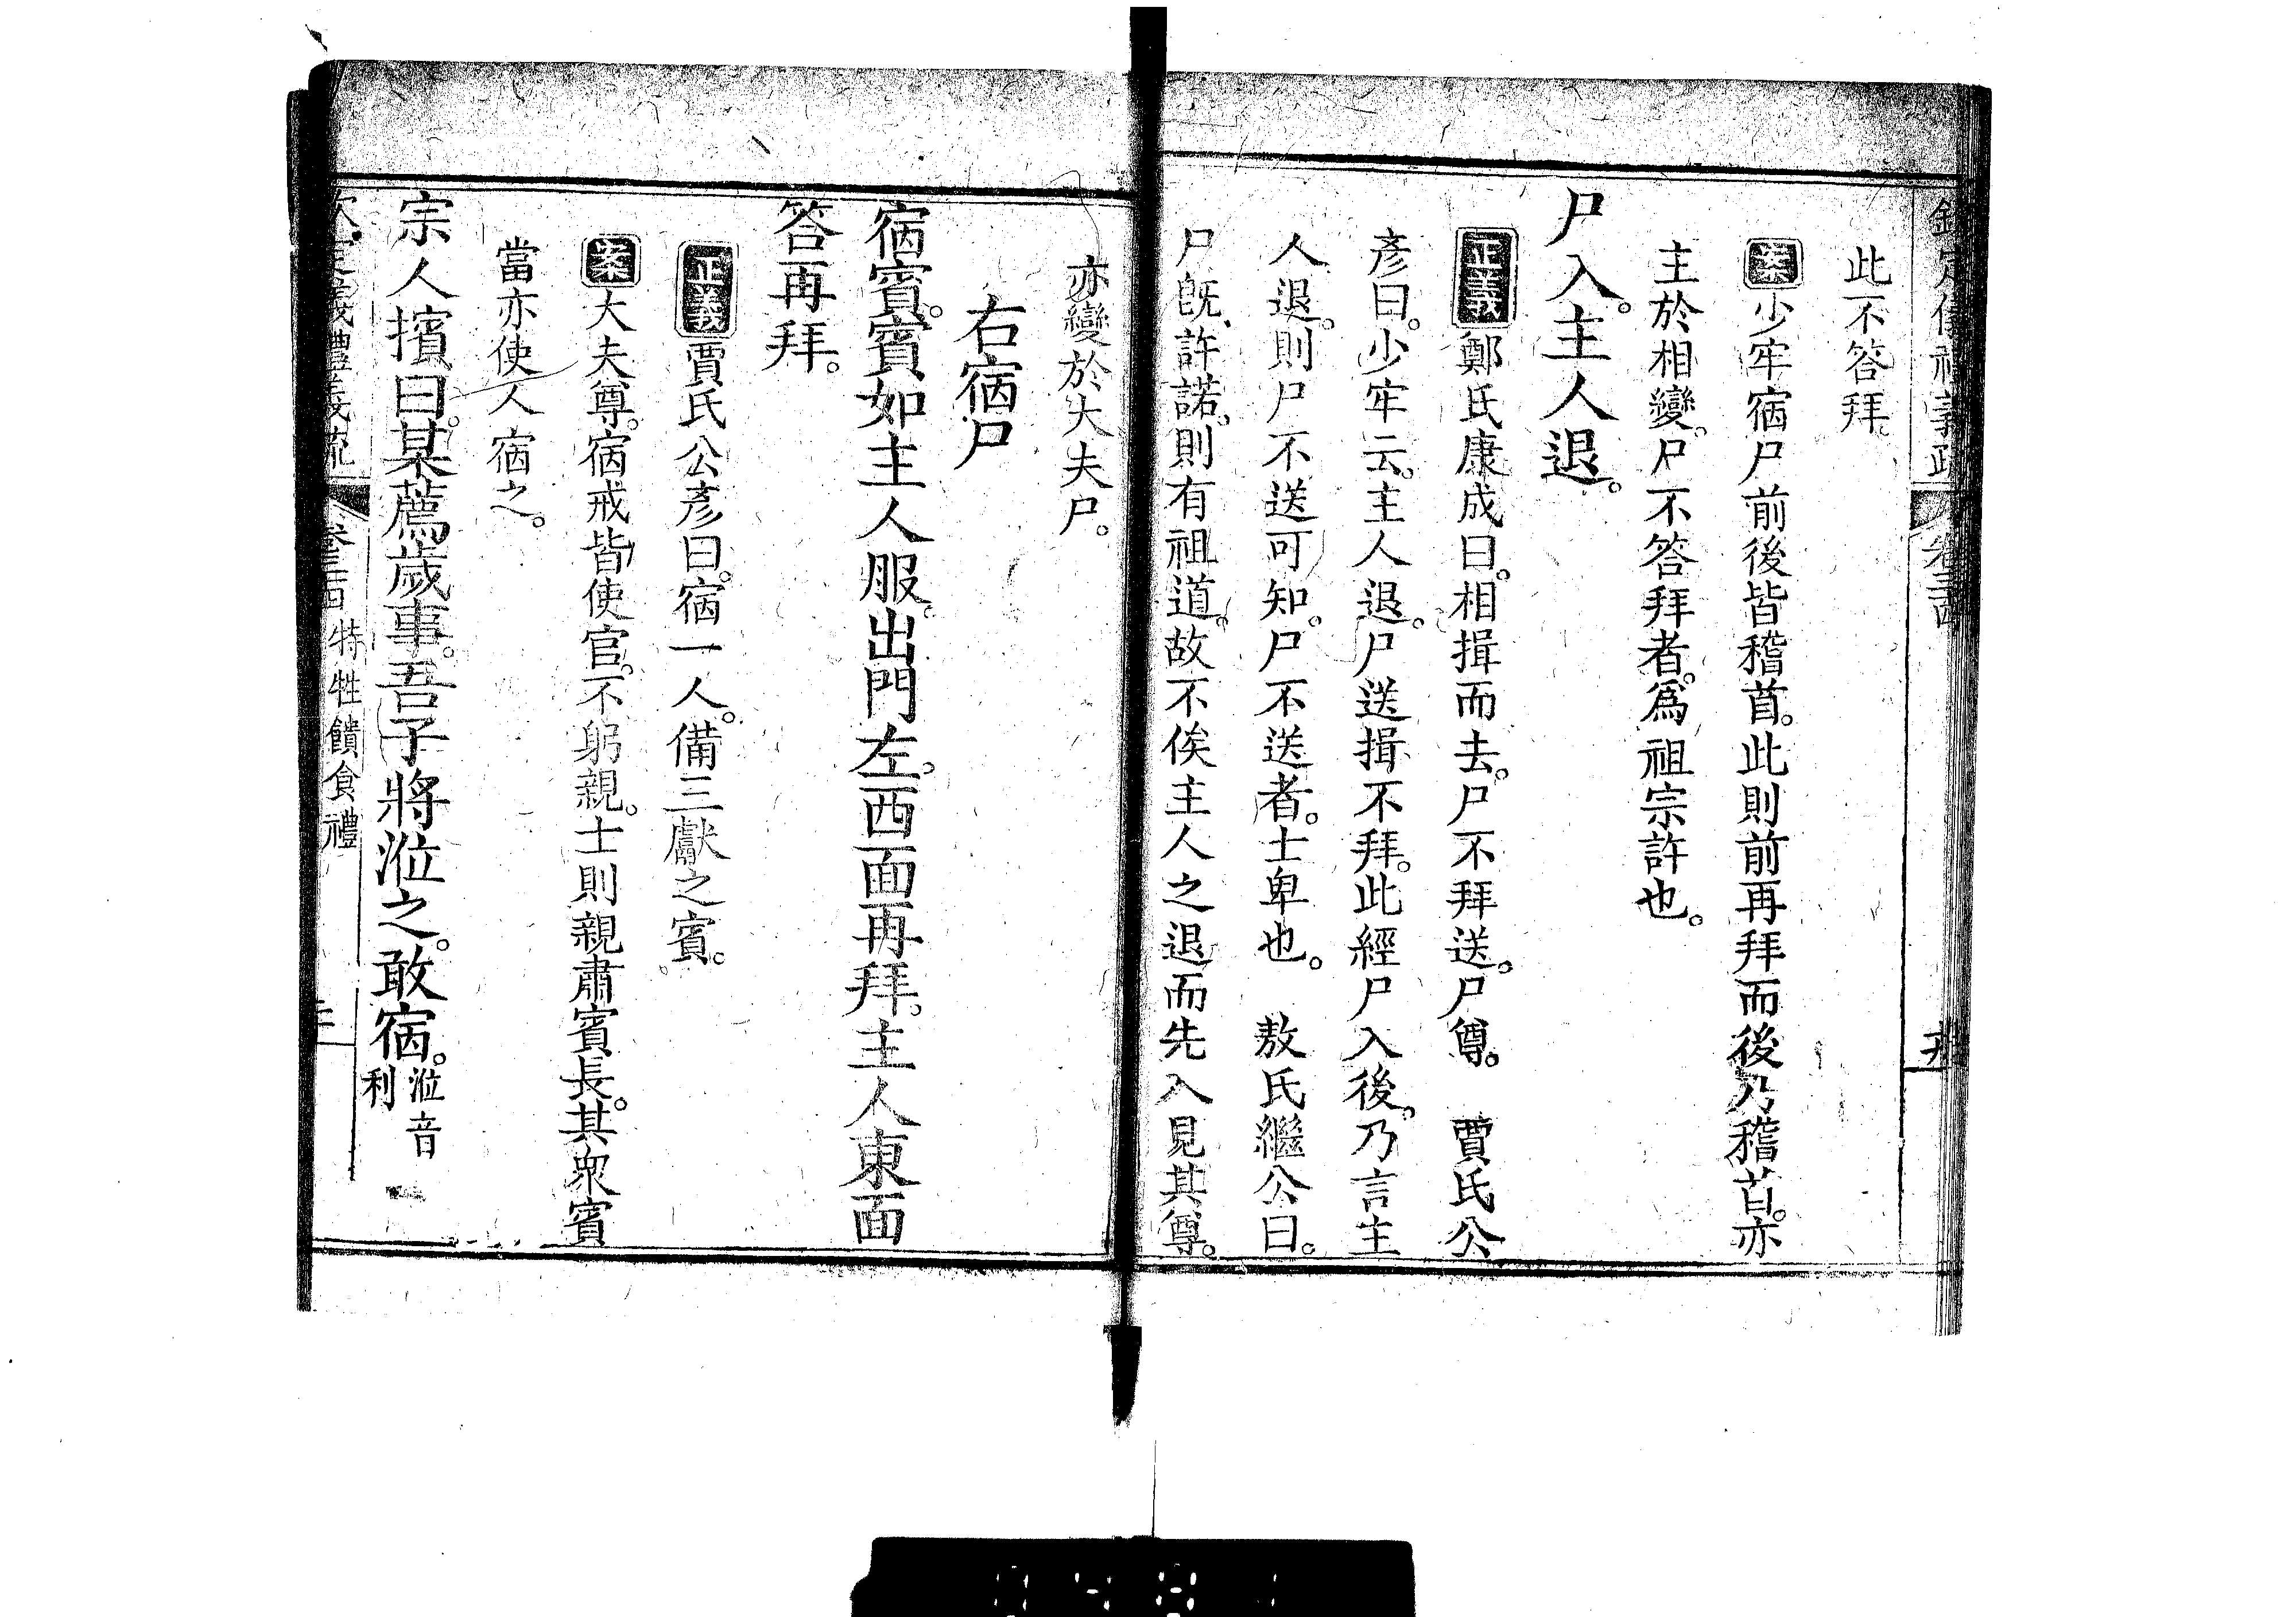 此不答拜。
案少牢宿尸前後皆稽首。此則前再拜而後乃稽首。亦
主於相變。尸不答拜者。爲祖宗許也。
尸入。主人退。
正義鄭氏康成曰。相揖而去。尸不拜送。尸尊。 賈氏公
彥曰。少牢云。主人退。尸送揖不拜。此經尸入後。乃言主
人退。則尸不送可知。尸不送者。士卑也。 敖氏繼公曰。
尸旣許諾。則有祖道。故不俟主人之退而先入見其尊。
亦變於大夫尸。
右宿尸
宿賓。賓如主人服。出門左。西面再拜。主人東面
答再拜。
正義賈氏公彥曰。宿一人。備三獻之賓。
案大夫尊。宿戒皆使官。不躬親。士則親肅賓長。其衆賓
當亦使人宿之。
宗人擯曰。某薦歲事。吾子將涖之。敢宿。涖音
利
特牲饋食禮